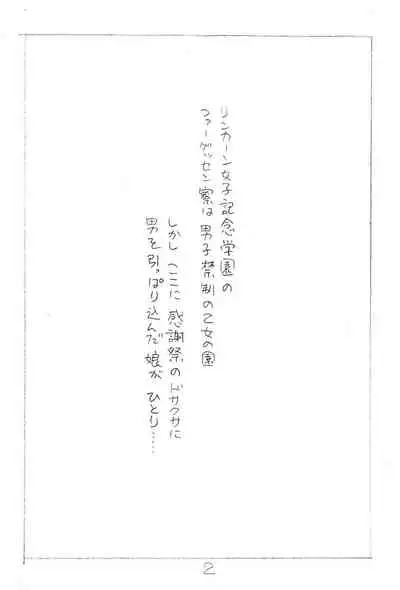 リンカーン女子記念学園の
ファーゲッセン寮は男子禁制の乙女の園
しかしここに感謝祭のドサクサに
男を引っぱり込んだ娘がひとり……
2